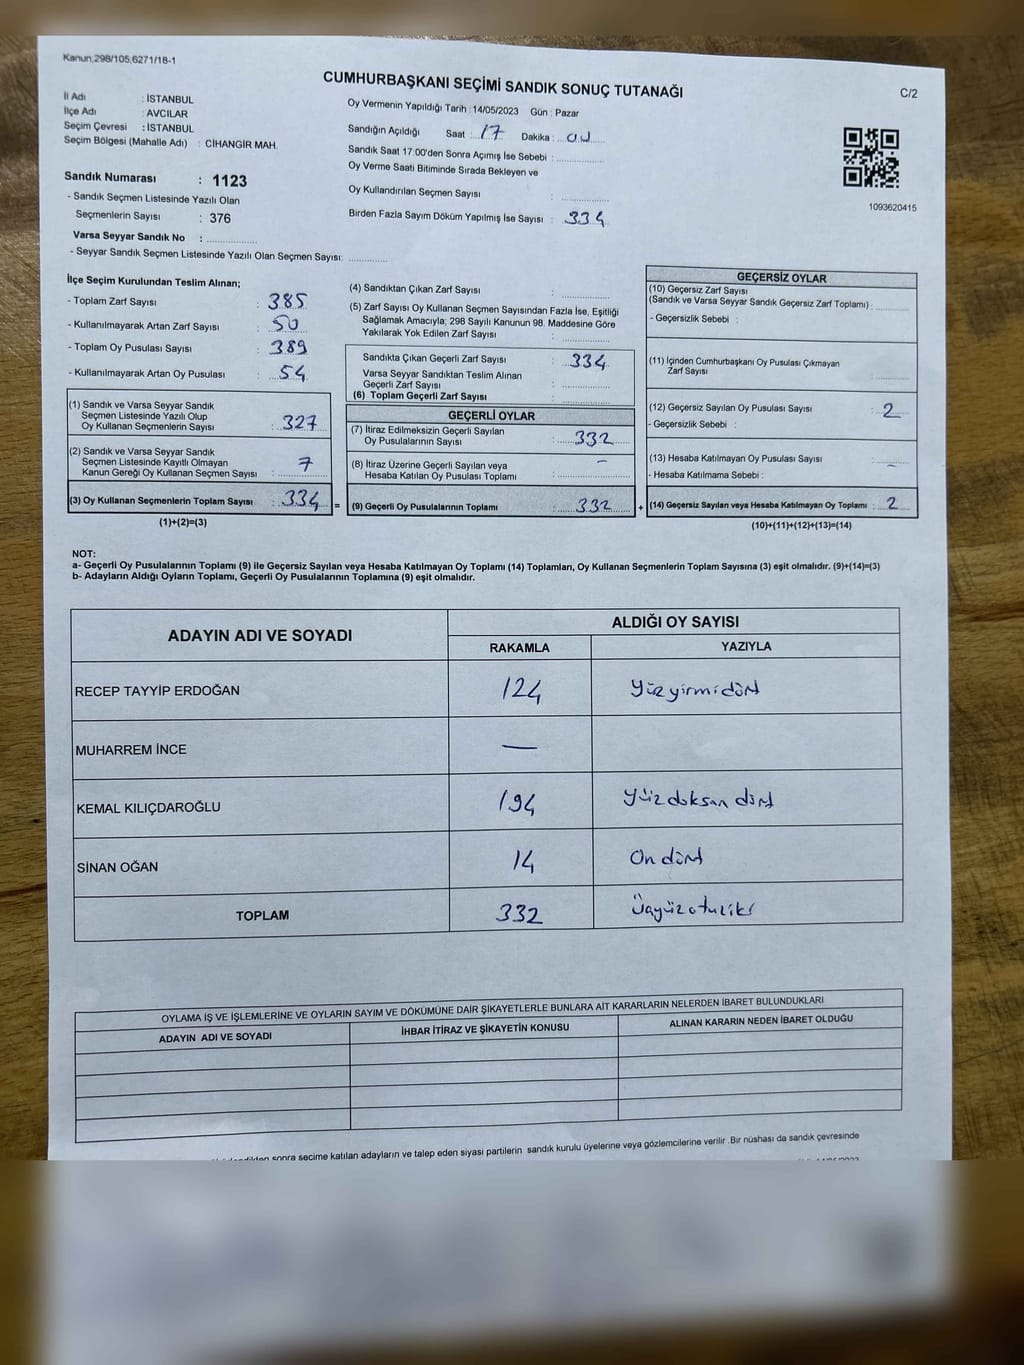 Kanun:298/105,6271/18-1
CUMHURBAŞKANI SEÇİMİ SANDIK SONUÇ TUTANAĞI
C/2
İl Adı : İSTANBUL
İlçe Adı : AVCILAR
Seçim Çevresi : İSTANBUL
Seçim Bölgesi (Mahalle Adı) : CİHANGİR MAH.
Sandık Numarası : 1123
- Sandık Seçmen Listesinde Yazılı Olan
Seçmenlerin Sayısı : 376
Varsa Seyyar Sandık No : ................
- Seyyar Sandık Seçmen Listesinde Yazılı Olan Seçmen Sayısı: ............
Oy Vermenin Yapıldığı Tarih : 14/05/2023 Gün : Pazar
Sandığın Açıldığı Saat : 17 Dakika : 00
Sandık Saat 17:00'den Sonra Açımış İse Sebebi : ................
Oy Verme Saati Bitiminde Sırada Bekleyen ve
Oy Kullandırılan Seçmen Sayısı : ................
Birden Fazla Sayım Döküm Yapılmış İse Sayısı : 334
1093620415
İlçe Seçim Kurulundan Teslim Alınan;
- Toplam Zarf Sayısı : 385
- Kullanılmayarak Artan Zarf Sayısı : 50
- Toplam Oy Pusulası Sayısı : 389
- Kullanılmayarak Artan Oy Pusulası : 54
(1) Sandık ve Varsa Seyyar Sandık
Seçmen Listesinde Yazılı Olup
Oy Kullanan Seçmenlerin Sayısı : 327
(2) Sandık ve Varsa Seyyar Sandık
Seçmen Listesinde Kayıtlı Olmayan
Kanun Gereği Oy Kullanan Seçmen Sayısı : 7
(3) Oy Kullanan Seçmenlerin Toplam Sayısı : 334 =
(1)+(2)=(3)
(4) Sandıktan Çıkan Zarf Sayısı : ................
(5) Zarf Sayısı Oy Kullanan Seçmen Sayısından Fazla İse, Eşitliği
Sağlamak Amacıyla; 298 Sayılı Kanunun 98. Maddesine Göre
Yakılarak Yok Edilen Zarf Sayısı : ................
Sandıkta Çıkan Geçerli Zarf Sayısı : 334
Varsa Seyyar Sandıktan Teslim Alınan
Geçerli Zarf Sayısı : ................
(6) Toplam Geçerli Zarf Sayısı : ................
GEÇERLİ OYLAR
(7) İtiraz Edilmeksizin Geçerli Sayılan
Oy Pusulalarının Sayısı : 332
(8) İtiraz Üzerine Geçerli Sayılan veya
Hesaba Katılan Oy Pusulası Toplamı : –
(9) Geçerli Oy Pusulalarının Toplamı : 332 +
GEÇERSİZ OYLAR
(10) Geçersiz Zarf Sayısı
(Sandık ve Varsa Seyyar Sandık Geçersiz Zarf Toplamı) : ............
- Geçersizlik Sebebi :
(11) İçinden Cumhurbaşkanı Oy Pusulası Çıkmayan
Zarf Sayısı ............
(12) Geçersiz Sayılan Oy Pusulası Sayısı : 2
- Geçersizlik Sebebi :
(13) Hesaba Katılmayan Oy Pusulası Sayısı : –
- Hesaba Katılmama Sebebi :
(14) Geçersiz Sayılan veya Hesaba Katılmayan Oy Toplamı : 2
(10)+(11)+(12)+(13)=(14)
NOT:
a- Geçerli Oy Pusulalarının Toplamı (9) ile Geçersiz Sayılan veya Hesaba Katılmayan Oy Toplamı (14) Toplamları, Oy Kullanan Seçmenlerin Toplam Sayısına (3) eşit olmalıdır. (9)+(14)=(3)
b- Adayların Aldığı Oyların Toplamı, Geçerli Oy Pusulalarının Toplamına (9) eşit olmalıdır.
ADAYIN ADI VE SOYADI ALDIĞI OY SAYISI
RAKAMLA YAZIYLA
RECEP TAYYİP ERDOĞAN 124 Yüzyirmidört
MUHARREM İNCE —
KEMAL KILIÇDAROĞLU 194 Yüzdoksan dört
SİNAN OĞAN 14 On dört
TOPLAM 332 Üçyüzotuziki
OYLAMA İŞ VE İŞLEMLERİNE VE OYLARIN SAYIM VE DÖKÜMÜNE DAİR ŞİKAYETLERLE BUNLARA AİT KARARLARIN NELERDEN İBARET BULUNDUKLARI
ADAYIN ADI VE SOYADI İHBAR İTİRAZ VE ŞİKAYETİN KONUSU ALINAN KARARIN NEDEN İBARET OLDUĞU
sonra seçime katılan adayların ve talep eden siyasi partilerin sandık kurulu üyelerine veya gözlemcilerine verilir .Bir nüshası da sandık çevresinde